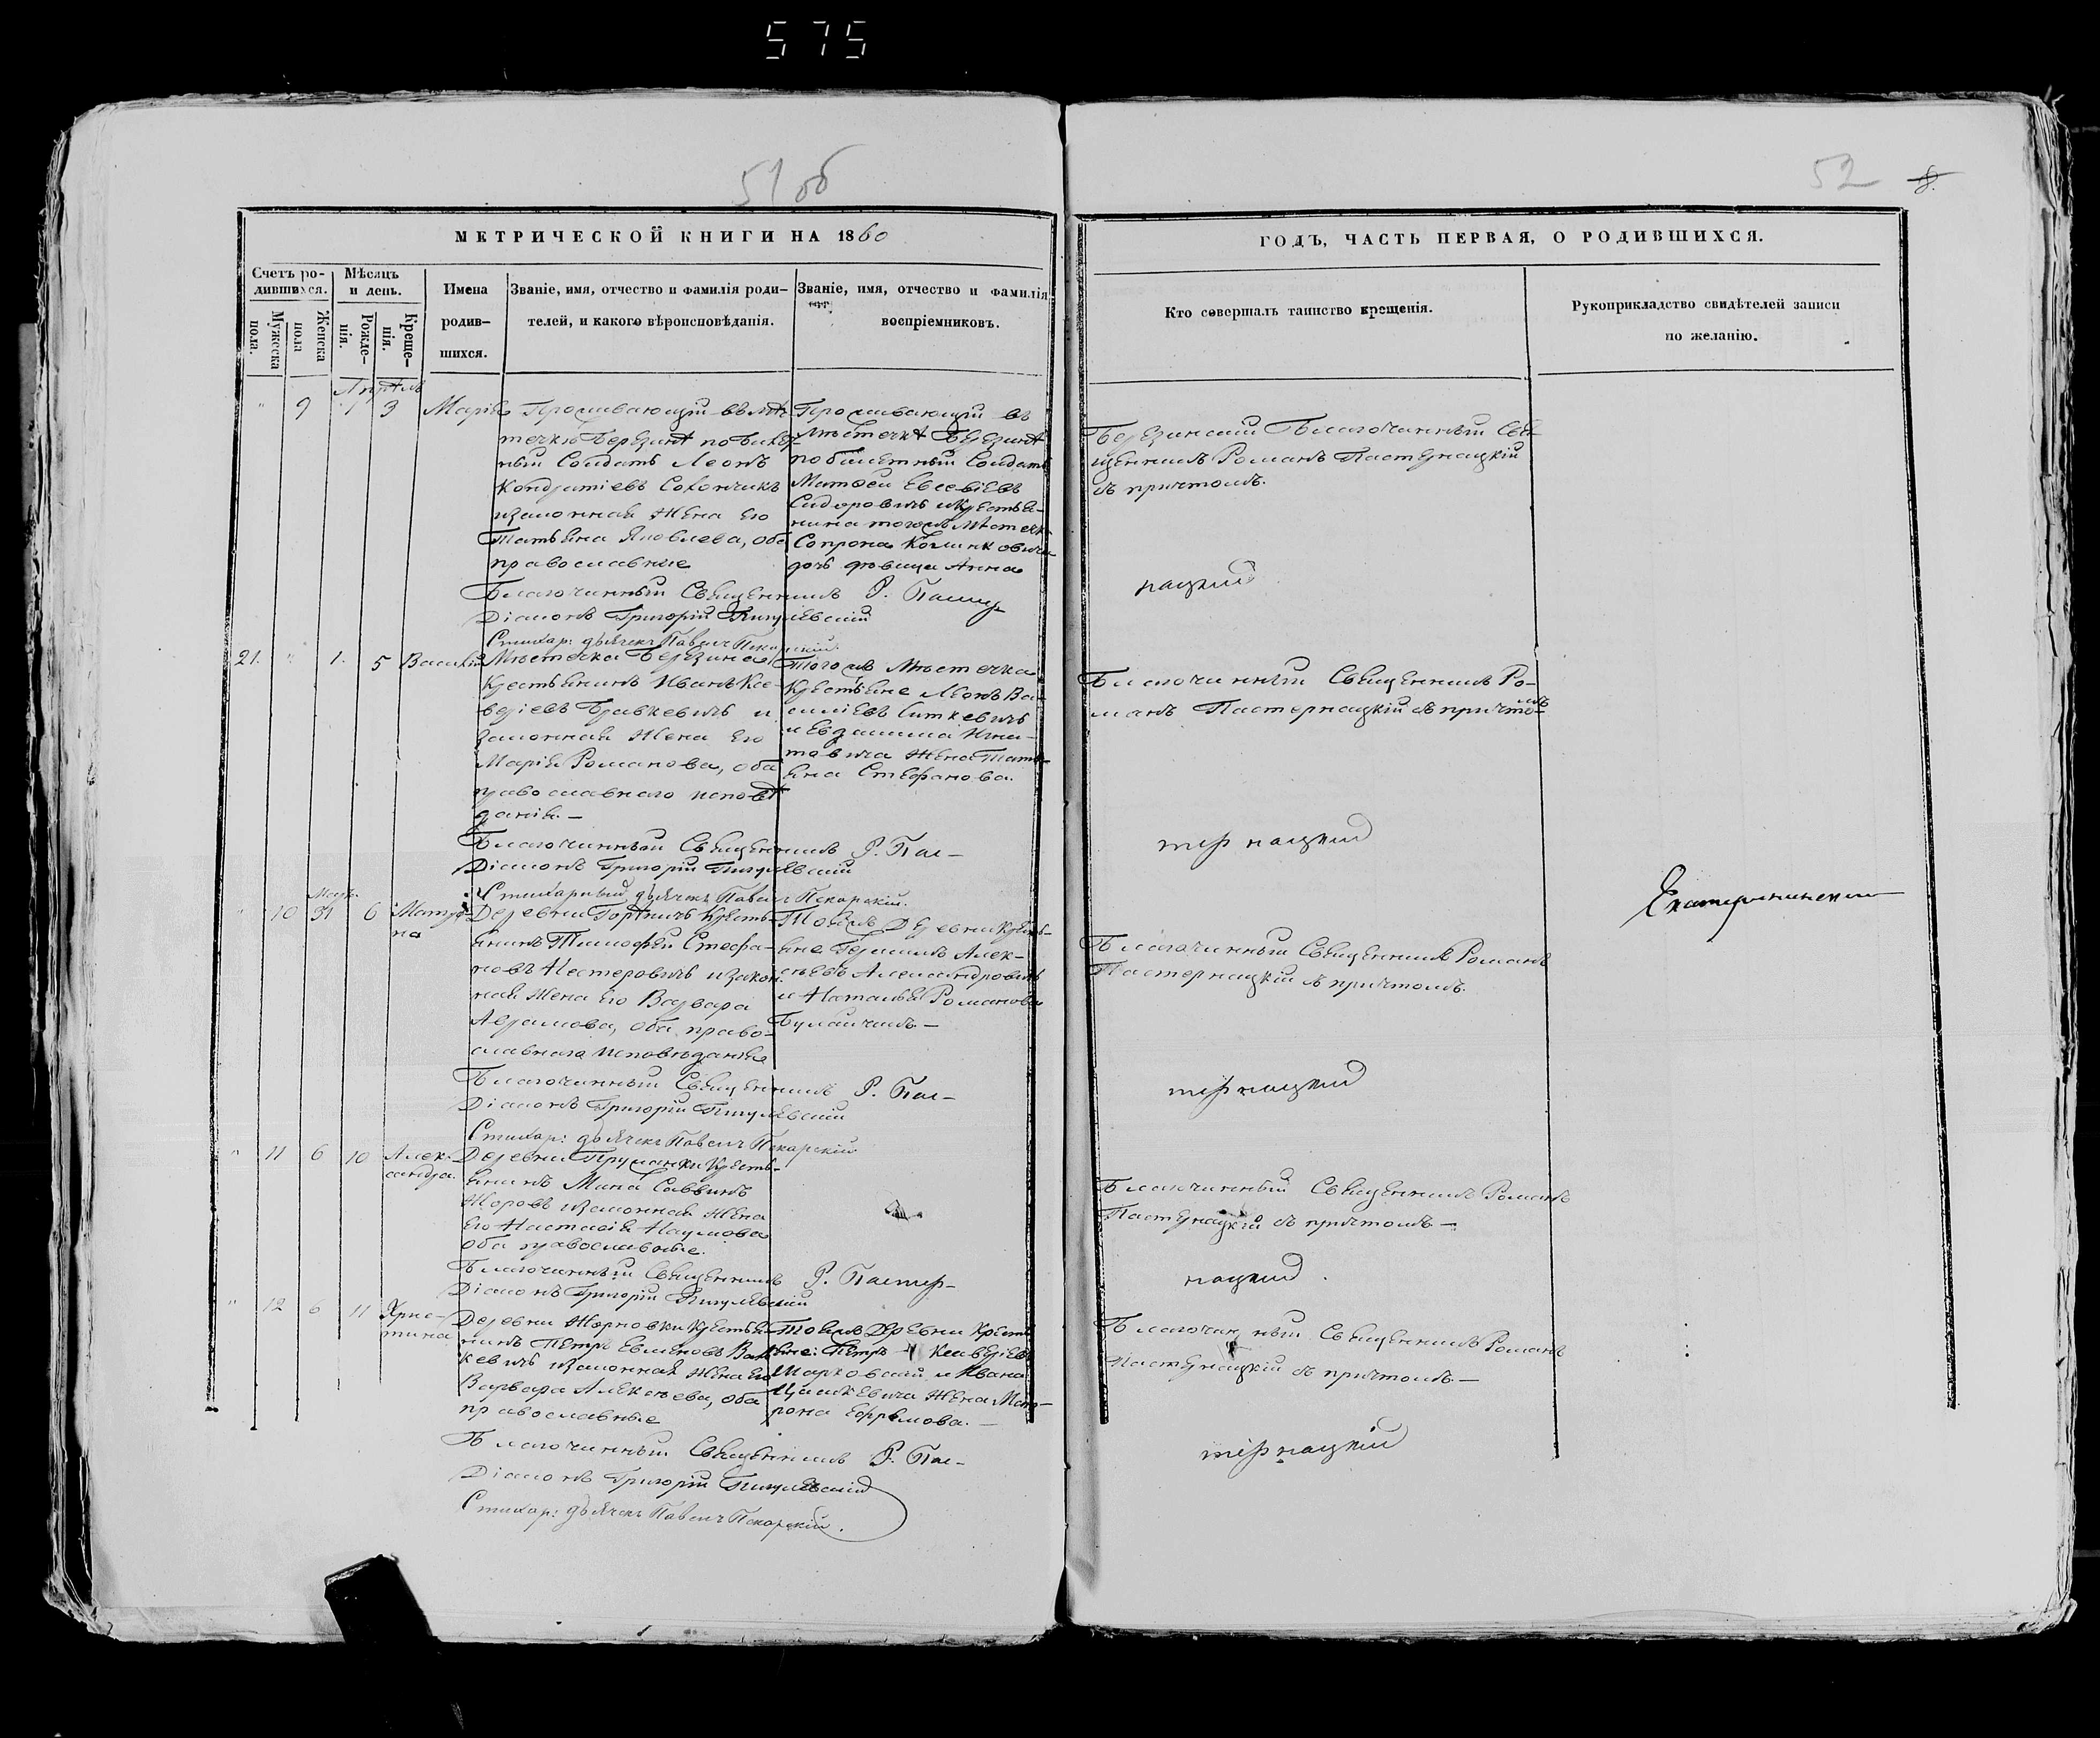 575
51 об
52
8.
МЕТРИЧЕСКОЙ КНИГИ НА 1860
ГОДЪ, ЧАСТЬ ПЕРВАЯ, О РОДИВШИХСЯ.
Счетъ родившихся.
Мужеска пола.
Женска пола
Мѣсяцъ и день.
Рожденія.
Крещенія.
Имена родившихся.
Званіе, имя, отчество и фамилія родителей, и какого вѣроисповѣданія.
Званіе, имя, отчество и фамилія воспріемниковъ.
Кто совершалъ таинство крещенія.
Рукоприкладство свидѣтелей записи по желанію.
Апрѣль
" 9 1 3 Марія
Проживающій въ мѣ-
течкѣ Березинѣ по билет-
ный Солдатъ Леонъ
Кондратіевъ
и законная жена его
Татьяна Яковлева, оба
православные
Проживающій въ
мѣстечкѣ Березинѣ
по билетный Солдатъ
Матѳей Евсевіевъ
Сидоровичъ и крестья-
нина того жъ мѣстечк
дочь дѣвица Анна
Березинскій Благочинный Свя-
щенникъ Романъ Пастернацкій
съ причтомъ.
Благочинный Священникъ Р. Пастер
нацкій
Діаконъ Григорій Пигулевскій
Стихар: дьячекъ Павелъ Пекарскій
21. " 1. 5 Василій
Мѣстечка Березина
крестьянинъ Иванъ Кса-
веріевъ и
законная жена его
Марія Романова, оба
православнаго исповѣ
данія.—
Того жъ мѣстечка
крестьяне Леонъ Ва-
силіевъ Ситкевичъ
товича жена Тать-
яна Стефанова.
Благочинный Священникъ Ро-
манъ Пастернацкій съ причтомъ
Благочинный Священникъ Р. Пас-
тернацкій
Діаконъ Григорій Пигулевскій
Стихарный дьячекъ Павелъ Пекарскій.
Март.
" 10 31 6 Матро-
на
Деревни крестья-
янинъ Тимофей Стефа-
новъ Нестеровичъ и закон-
ная жена его Варвара
Аврамова, оба право-
славнаго исповѣданія
Той жъ деревни крестья-
яне Алек-
сѣевъ Александровичъ
и Наталья Романова
Благочинный Священникъ Романъ
Пастернацкій съ причтомъ.
Благочинный Священникъ Р. Пас-
тернацкій
Діаконъ Григорій Пигулевскій
Стихар: дьячекъ Павелъ Пекарскій
Екатерининскій
" 11 6 10 Алек-
сандра.
Деревни кресть-
янинъ Мина Саввинъ
Жоровъ и законная жена
его Настасія Наумова
оба православные.
Благочинный Священникъ Романъ
Пастернацкій съ причтомъ—
Благочинный Священникъ Р. Пастер-
нацкій.
Діаконъ Григорій Пигулевскій
" 12 6 11 Хрис-
тина
Деревни Жорновки крестья-
нинъ Петръ
кевичъ и законная жена его
Варвара Алексѣева, оба
православные
Той жъ деревни кресть
яне: Петръ Ксаверіевъ
и Ивана
жена Мат-
рона Ефремова.—
Благочинный Священникъ Романъ
Пастернацкій съ причтомъ.—
Благочинный Священникъ Р. Пас-
тернацкій
Діаконъ Григорій Пигулевскій
Стихар: дьячекъ Павелъ Пекарскій.